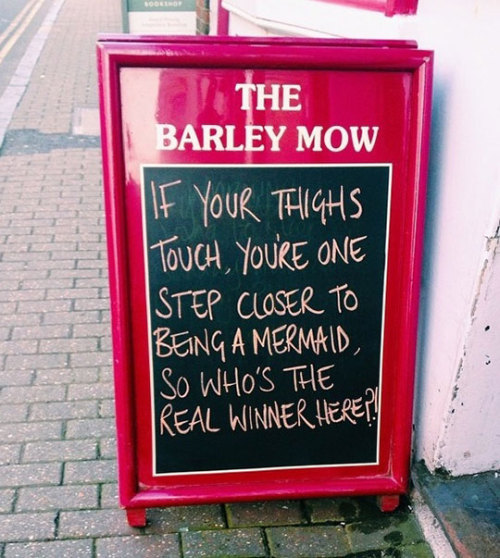 BOOKSHOP
THE
BARLEY MOW
IF YOUR THIGHS
TOUCH, YOU'RE ONE
STEP CLOSER TO
BEING A MERMAID,
SO WHO'S THE
REAL WINNER HERE?!